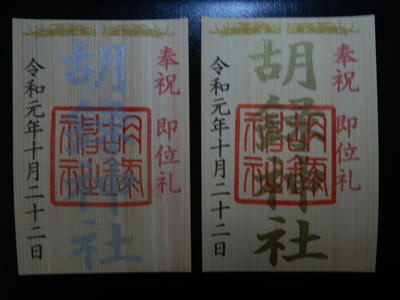 奉祝 即位礼
胡録神社
令和元年十月二十二日
奉祝 即位礼
胡録神社
令和元年十月二十二日